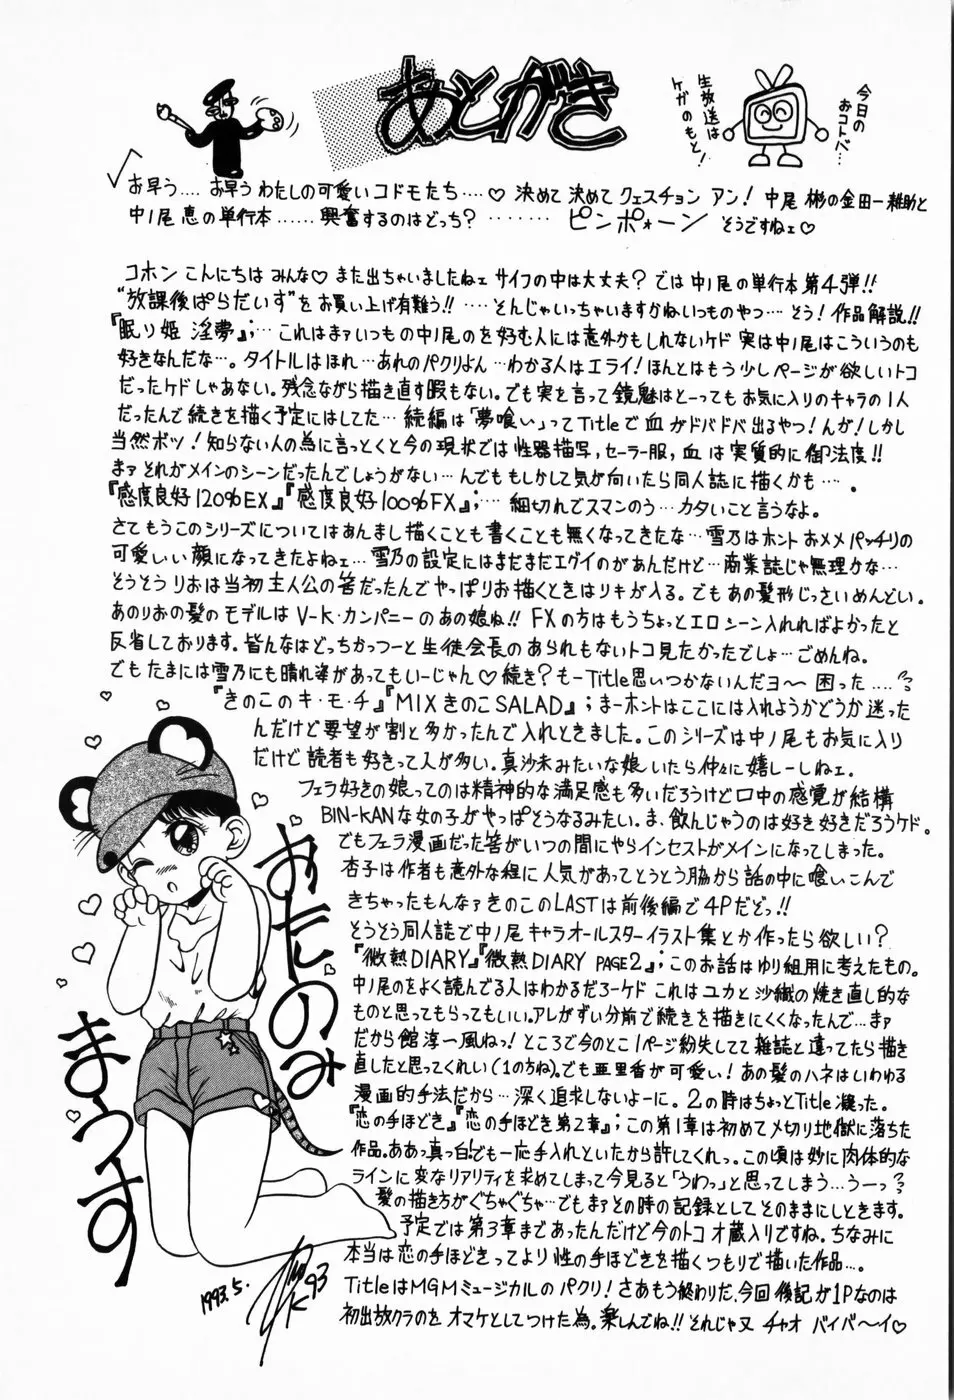 あとがき
今日のおコトバ…
生放送は
ケガのもと!
お早う.... お早うわたしの可愛いコドモたち....♡ 決めて決めてクェスチョンアン! 中尾彬の金田一耕助と
中ノ尾恵の単行本......興奮するのはどっち? ....... ピンポォーン そうですねェ♡
コホン こんにちは みんな♡ また出ちゃいましたねェ サイフの中は大丈夫? では中ノ尾の単行本第4弾!!
“放課後ぱらだいす”をお買い上げ有難う!! ....そんじゃいっちゃいますかねいつものやつ...そう! 作品解説!!
『眠り姫 淫夢』;... これはまァいつもの中ノ尾のを好む人には意外かもしれないケド 実は中ノ尾はこういうのも
好きなんだな…。タイトルはほれ...あれのパクリよん...わかる人はエライ! ほんとはもう少しページが欲しいトコ
だったケドしゃあない。残念ながら描き直す暇もない。でも実を言って鏡魅はとーってもお気に入りのキャラの1人
だったんで続きを描く予定にはしてた...続編は「夢喰い」ってTitleで血がドバドバ出るやつ! んが! しかし
当然ボツ! 知らない人の為に言っとくと今の現状では性器描写,セーラー服,血は実質的に御法度!!
まァそれがメインのシーンだったんでしょうがない...んでももしかして気が向いたら同人誌に描くかも...。
『感度良好120%EX』『感度良好100%FX』;... 細切れでスマンのう...カタいこと言うなよ。
さてもうこのシリーズについてはあんまし描くことも書くことも無くなってきたな...雪乃はホントおメメパッチリの
可愛いい顔になってきたよねェ...雪乃の設定にはまだまだエグイのがあんだけど...商業誌じゃ無理かな...
そうそうりおは当初主人公の筈だったんでやっぱりお描くときはリキが入る。でもあの髪形じっさいめんどい。
あのりおの髪のモデルはV-K・カンパニーのあの娘ね!! FXの方はもうちょっとエロシーン入れればよかったと
反省しております。皆んなはどっちかっつーと生徒会長のあられもないトコ見たかったでしょ...ごめんね。
でもたまには雪乃にも晴れ姿があってもいーじゃん♡続き? もーTitle思いつかないんだヨ〜 困った....
『きのこのキ・モ・チ』『MIXきのこSALAD』; まーホントはここには入れようかどうか迷った
んだけど要望が割と多かったんで入れときました。このシリーズは中ノ尾もお気に入り
だけど読者も好きって人が多い。真沙未みたいな娘いたら仲々に嬉しーしねェ.
フェラ好きの娘ってのは精神的な満足感も多いだろうけど口中の感覚が結構
BIN-KANな女の子がやっぱそうなるみたい。ま、飲んじゃうのは好き好きだろうケド。
でもフェラ漫画だった筈がいつの間にやらインセストがメインになってしまった。
杏子は作者も意外な程に人気があってとうとう脇から話の中に喰いこんで
きちゃったもんなァきのこのLASTは前後編で4Pだどっ!!
そうそう同人誌で中ノ尾キャラオールスターイラスト集とか作ったら欲しい?
『微熱DIARY』『微熱DIARY PAGE2』;このお話はゆり組用に考えたもの。
中ノ尾のをよく読んでる人はわかるだろーケド これはユカと沙織の焼き直し的な
ものと思ってもらってもいい。アレがずい分前で続きを描きにくくなったんで...まァ
だから館淳一風ねっ! ところで今のとこ1ページ紛失してて雑誌と違ってたら描き
直したと思ってくれい(1の方ね)。でも亜里香が可愛い! あの髪のハネはいわゆる
漫画的手法だから...深く追求しないよーに。2の時はちょっとTitle凝った。
『恋の手ほどき』『恋の手ほどき第2章』;この第1章は初めて〆切り地獄に落ちた
作品。ああっ真っ白!でも一応手入れといたから許してくれっ。この頃は妙に肉体的な
ラインに変なリアリティを求めてしまって今見ると「うわっ」と思ってしまう...うーっ
髪の描き方がぐちゃぐちゃ...でもまァその時の記録としてそのままにしときます。
予定では第3章まであったんだけど今のトコオ蔵入りですね。ちなみに
本当は恋の手ほどきってより性の手ほどきを描くつもりで描いた作品...。
TitleはMGMミュージカルのパクリ! さあもう終わりだ、今回後記が1Pなのは
初出放クラのをオマケとしてつけた為。楽しんでね!! それじゃ又 チャオ バイバ〜イ♡
おたのみ
まうす
1993.5.
93